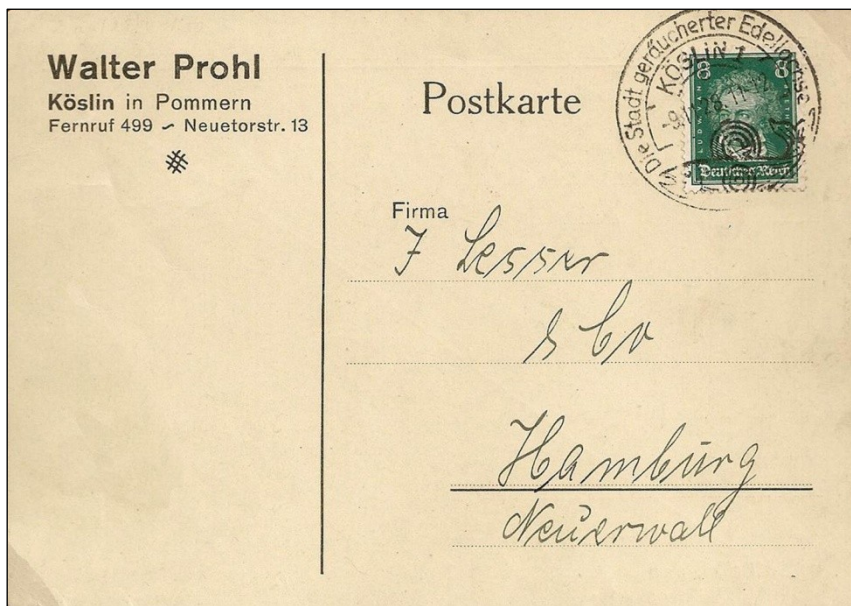 Walter Prohl
Köslin in Pommern
Fernruf 499 ~ Neuetorstr. 13
Postkarte
Die Stadt geräucherter Edellachse
KÖSLIN 1
8 8
LUDW. VAN
Deutsches Reich
Firma
J Lesser
& Co
Hamburg
Neuerwall